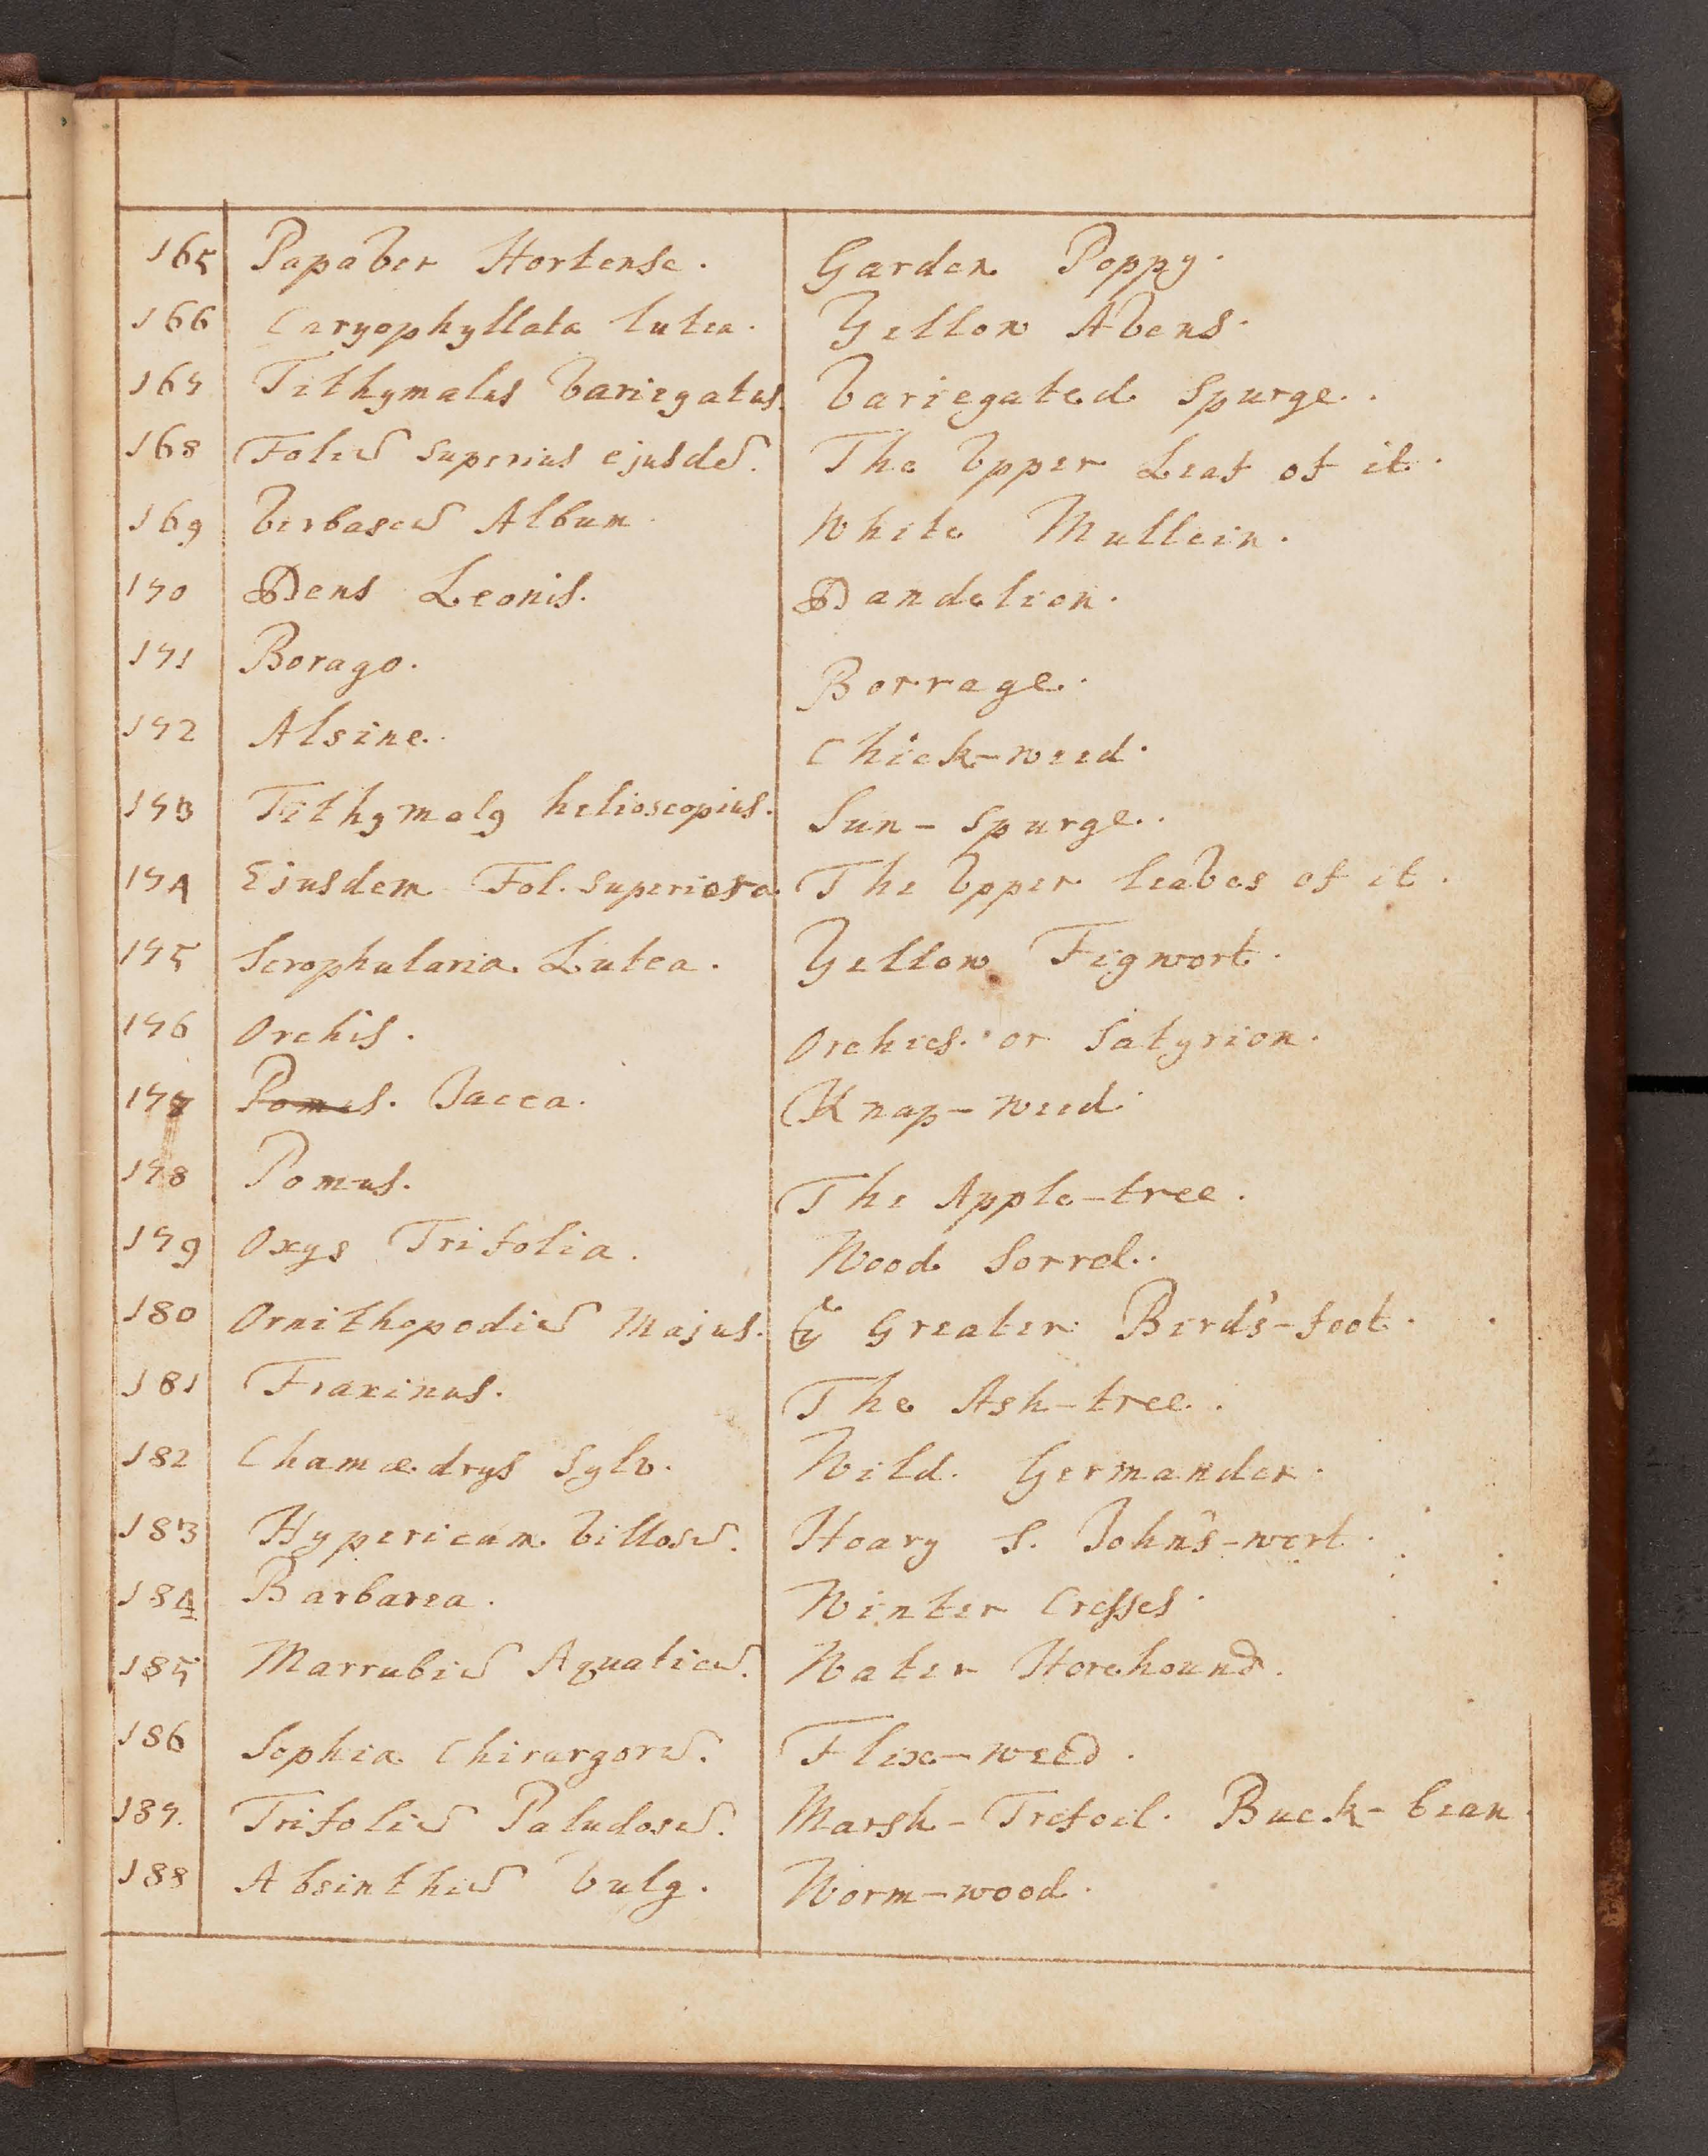 165 Papaver Hortense. Garden Poppy.
166 Caryophyllata lutea. Yellow Avens.
167 Tithymalus Variegatus. Variegated Spurge.
168 Foliu̅ Superius ejusde̅. The Upper Leaf of it.
169 Verbascu̅ Album. White Mullein.
170 Dens Leonis. Dandelion.
171 Borago. Borrage.
172 Alsine. Chick-weed.
173 Tithymalꝯ helioscopius. Sun-Spurge.
174 Ejusdem Fol. Superiora. The Upper leaves of it.
175 Scrophularia Lutea. Yellow Figwort.
176 Orchis. Orchies. or Satyrion.
177 Pomus. Jacea. Knap-weed.
178 Pomus. The Apple-tree.
179 Oxys Trifolia. Wood Sorrel.
180 Ornithopodiu̅ Majus. yͤ Greater Bird's-foot.
181 Fraxinus. The Ash-tree.
182 Chamædrys Sylv. Wild Germander.
183 Hypericum Villosu̅. Hoary S. John's-wort.
184 Barbarea. Winter Cresses.
185 Marrubiu̅ Aquaticu̅. Water Horehound.
186 Sophia Chirurgoru̅. Flix-weed.
187. Trifoliu̅ Paludosu̅. Marsh-Trefoil. Buck-bean.
188 Absinthiu̅ Vulg. Worm-wood.